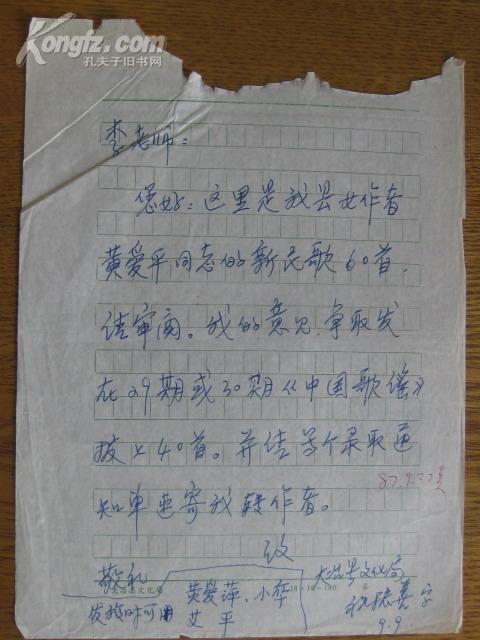 Kongfz.com
孔夫子旧书网
李老师：
您好：这里是我县女作者
黄爱平同志的新民歌60首，
请审阅。我的意见，争取发
在29期或30期《中国歌谣》
拔上40首。并请写个录取通
知单速寄我转作者。
87.9.27
致
敬礼
大冶县文化局
9.9
发搞时可用
黄爱萍、小
艾平